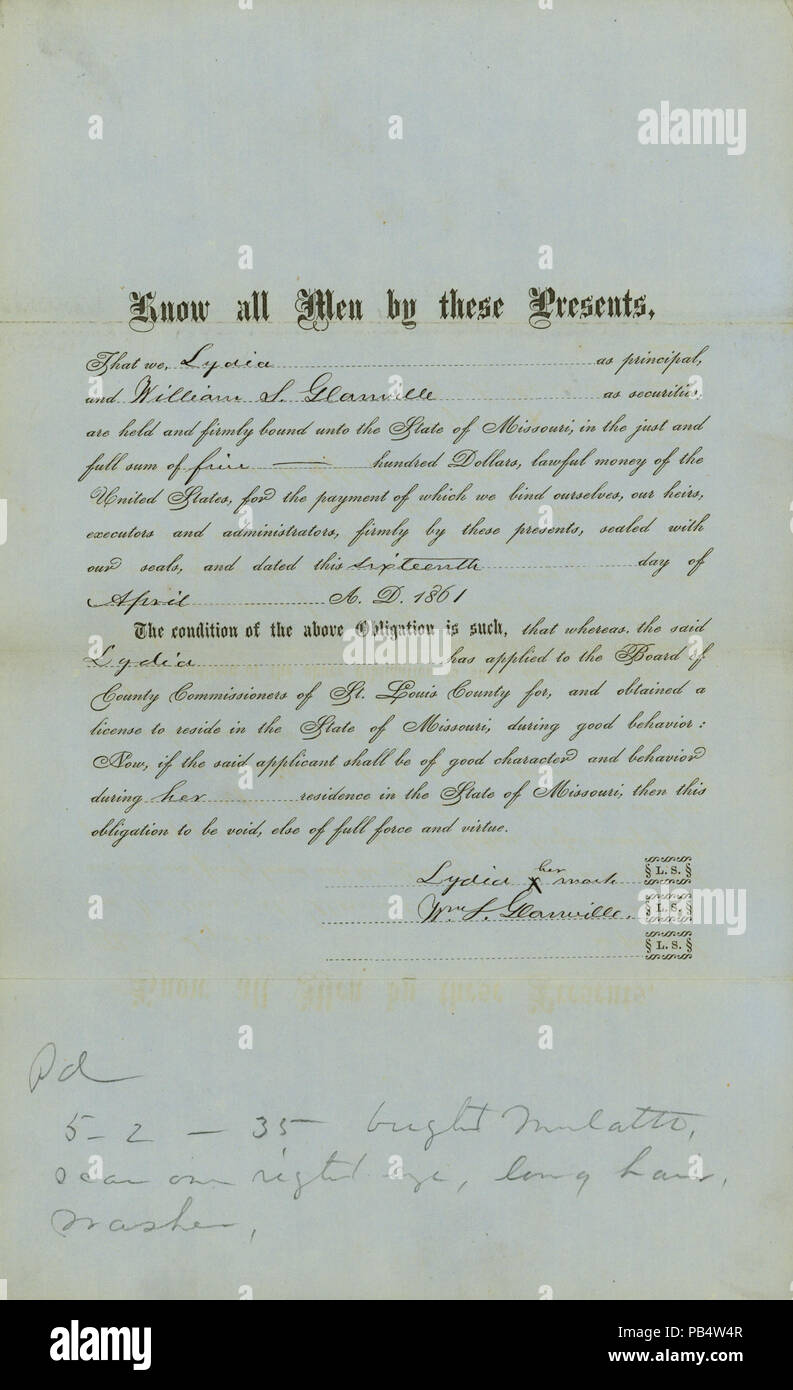 Know all Men by these Presents,
That we, Lydia as principal,
and William S. Glanville as securities,
are held and firmly bound unto the State of Missouri, in the just and
full sum of five hundred Dollars, lawful money of the
United States, for the payment of which we bind ourselves, our heirs,
executors and administrators, firmly by these presents, sealed with
our seals, and dated this sixteenth day of
April A. D. 1861
The condition of the above Obligation is such, that whereas, the said
Lydia has applied to the Board of
County Commissioners of St. Louis County for, and obtained a
license to reside in the State of Missouri, during good behavior:
Now, if the said applicant shall be of good character and behavior
during her residence in the State of Missouri, then this
obligation to be void, else of full force and virtue.
her
Lydia x mark § L. S. §
Wm S. Glanville. § L. S. §
§ L. S. §
Pd
5-2 — 35 bright Mulatto,
scar over right eye, long hair,
washer,
alamy
Image ID: PB4W4R
www.alamy.com